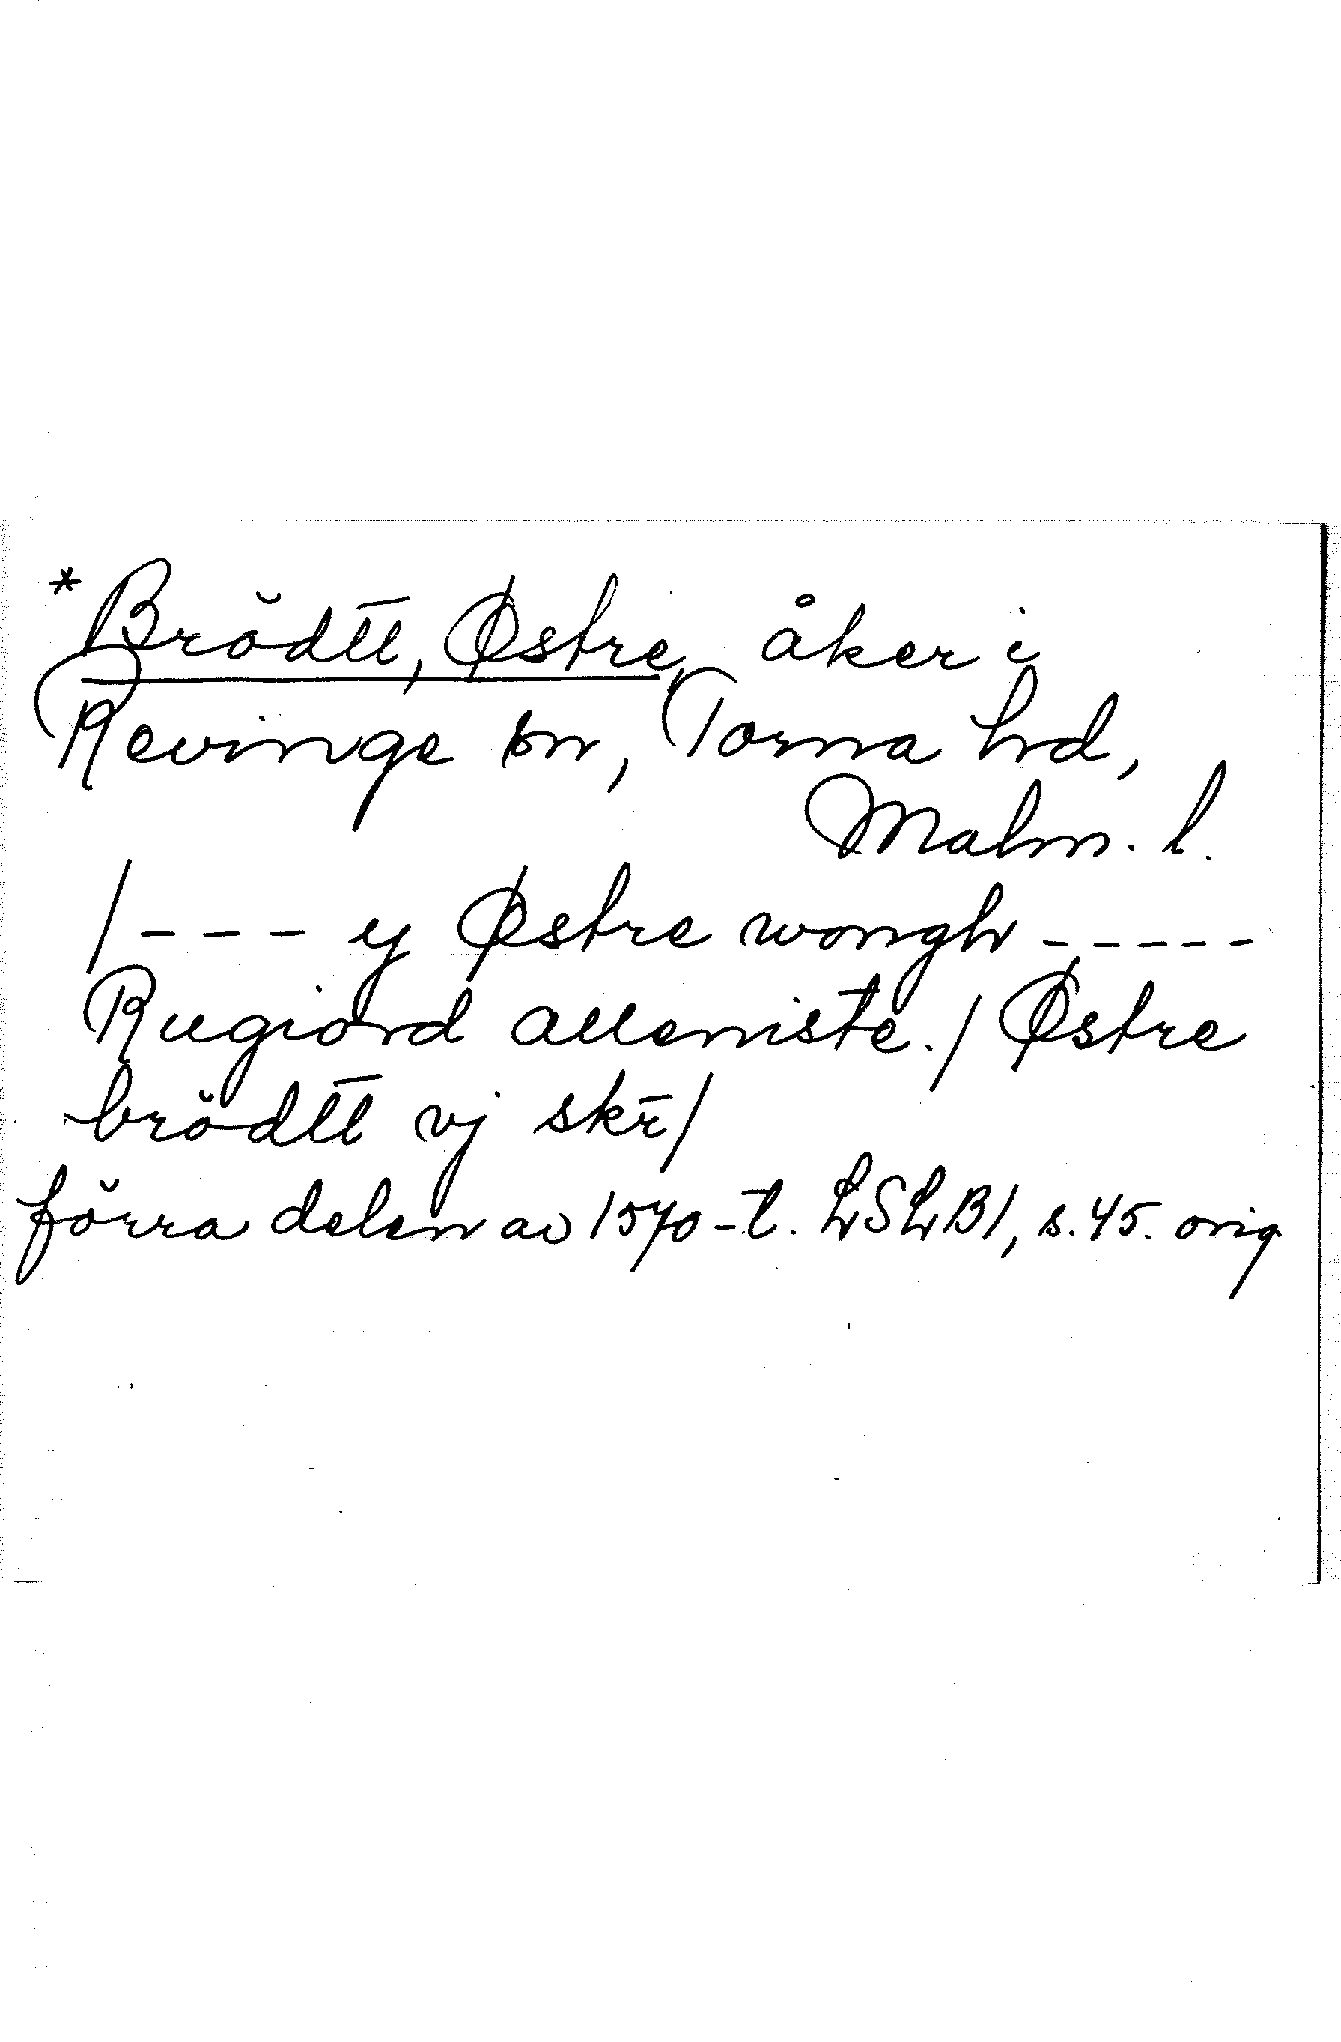 *Brödtt, Østre, åker i
Revinge sn, Torna hd,
Malm. l.
/--- y Østre wongh -----
Rugiord alleniste./ Østre
brödtt vj skr̄/
förra delen av 1570-t. LSLB1, s.45. orig